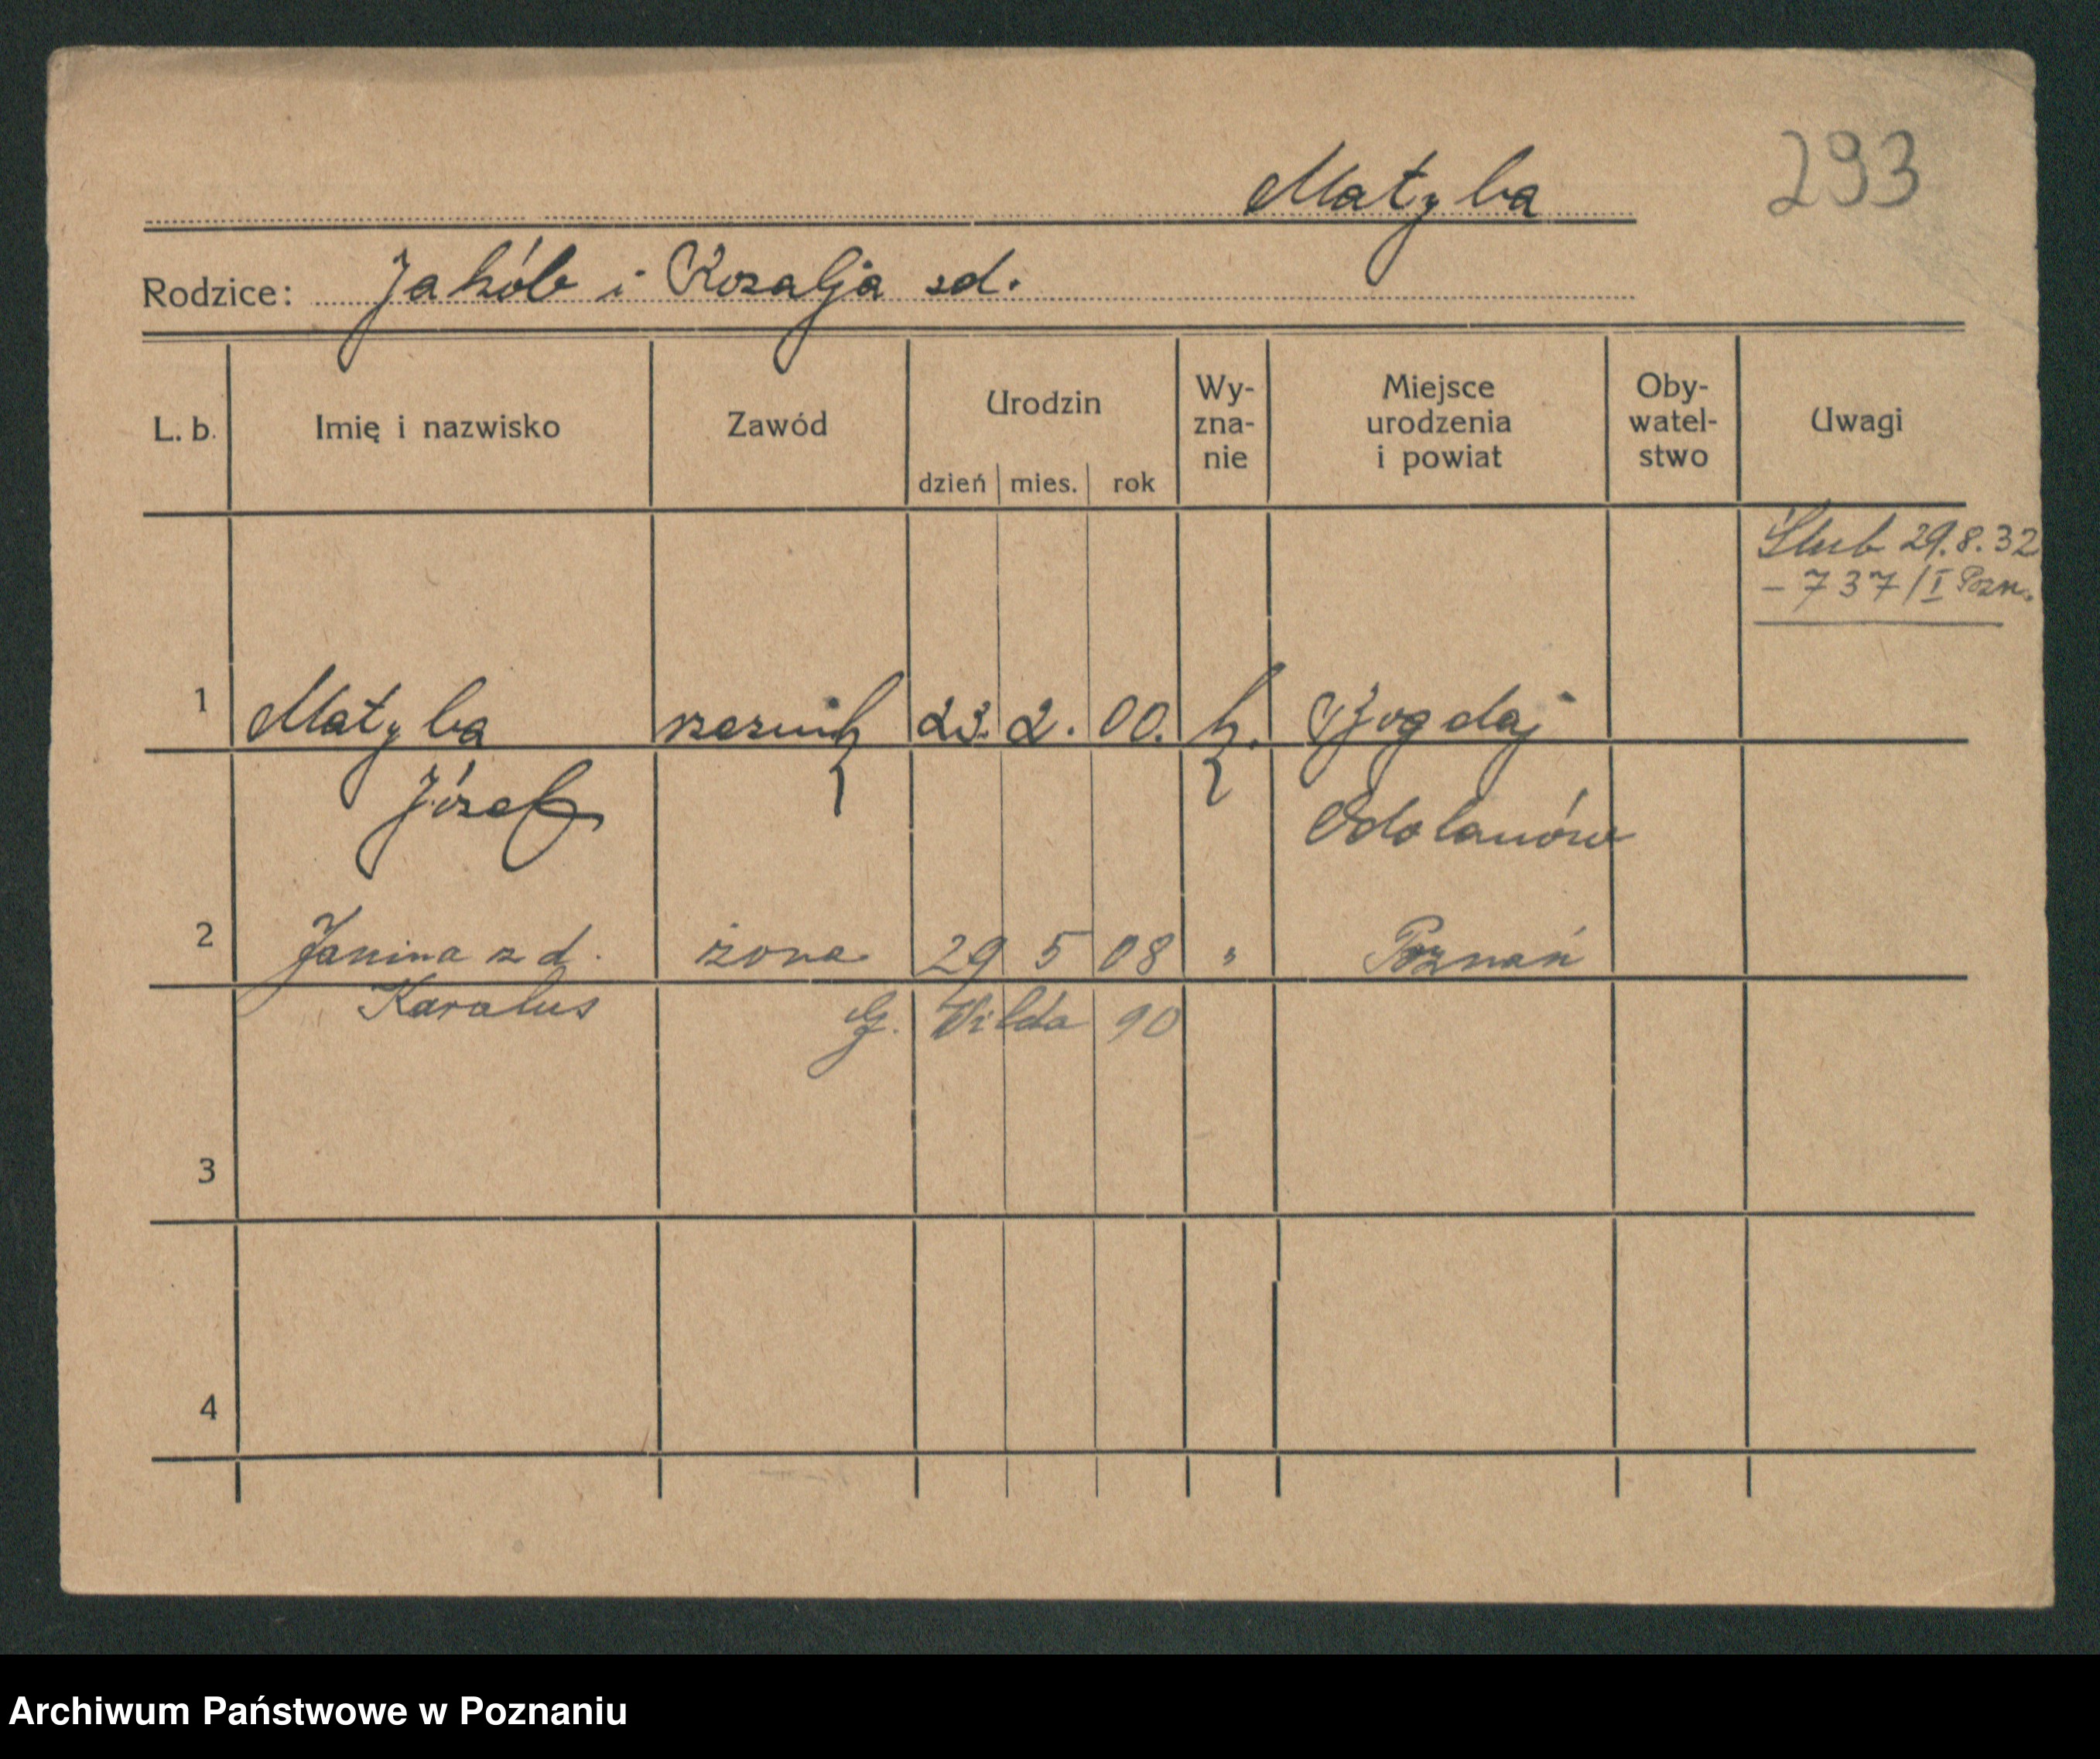 Matyba
293
Rodzice: Jakób i Rozalja zd.
L. b. Imię i nazwisko Zawód Urodzin dzień mies. rok Wy-zna-nie Miejsce urodzenia i powiat Oby-watel-stwo Uwagi
Ślub 29.8.32
– 737/I Pozn.
1 Matyba rzeźnik 23. 2. 00. k.
Józef Odolanów
2 Janina z d. żona 29 5 08 " Poznań
Karalus G. Wilda 90
3
4
Archiwum Państwowe w Poznaniu